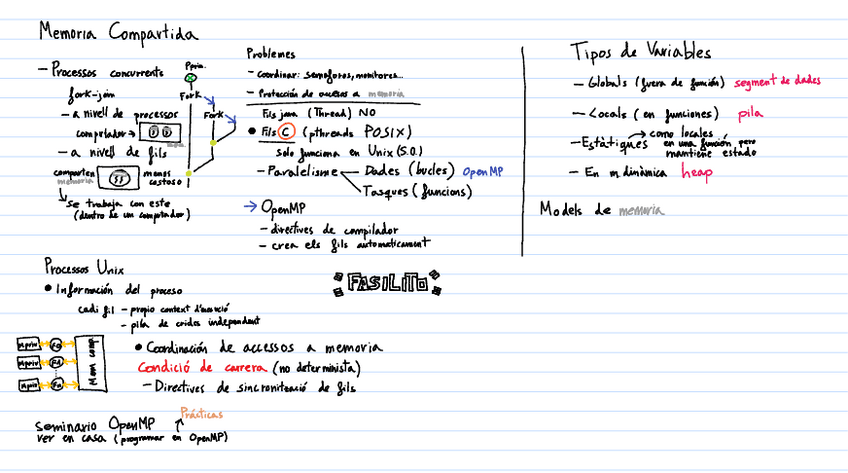 Memoria Compartida
- Processos concurrents
fork-join
- a nivell de processos
computador →
- a nivell de fils
comparten memoria
menos costoso
se trabaja con este
(dentro de un computador)
Fork
Fork
Problemes
- Coordinar: semáforos, monitores...
- Protección de acceso a memoria
Fils java (Thread) NO
• Fils C (pthreads POSIX)
Solo funciona en Unix (S.O.)
- Paralelisme
Dades (bucles) OpenMP
Tasques (funcions)
→ OpenMP
- directives de compilador
- crea els fils automaticament
Tipos de Variables
- Globals (fuera de función) segment de dades
- Locals (en funciones) pila
- Estàtiques → como locales en una función pero mantiene estado
- En m dinàmica heap
Models de memoria
Processos Unix
• Información del proceso
cadi fil - propio context d'execució
- pila de crides independent
FASILITO
Mpriv
Mpriv
Mpriv
Mem comp
• Coordinación de accessos a memoria
Condició de carrera (no determinista)
- Directives de sincronització de fils
Seminario OpenMP ↑ Prácticas
ver en casa (programar en OpenMP)